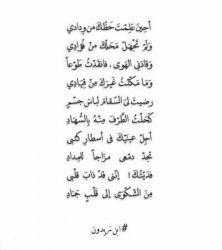 أحِينَ عَلِمْتَ حَظَّكَ من وِدادي
وَلَمْ تَجْهَلْ مَحَلَّكَ منْ فُؤادِي
وَقادَنِي الهَوى، فانقَدْتُ طَوْعاً
وَمَا مَكَّنْتُ غَيرَكَ مِنْ قِيَادِي
رضيتَ ليَ السّقامَ لباسَ جسْمٍ
كَحَلْتُ الطَّرْفَ مِنْهُ بِالسُّهَادِ
أجِلْ عينَيْكَ في أسطارِ كتبي
تجدْ دمعي مزاجاً للمِدادِ
فدَيْتُكَ! إنّني قدْ ذابَ قلْبي
مِنَ الشّكْوَى إلى قَلْبٍ جَمادِ
#ابن زيدون